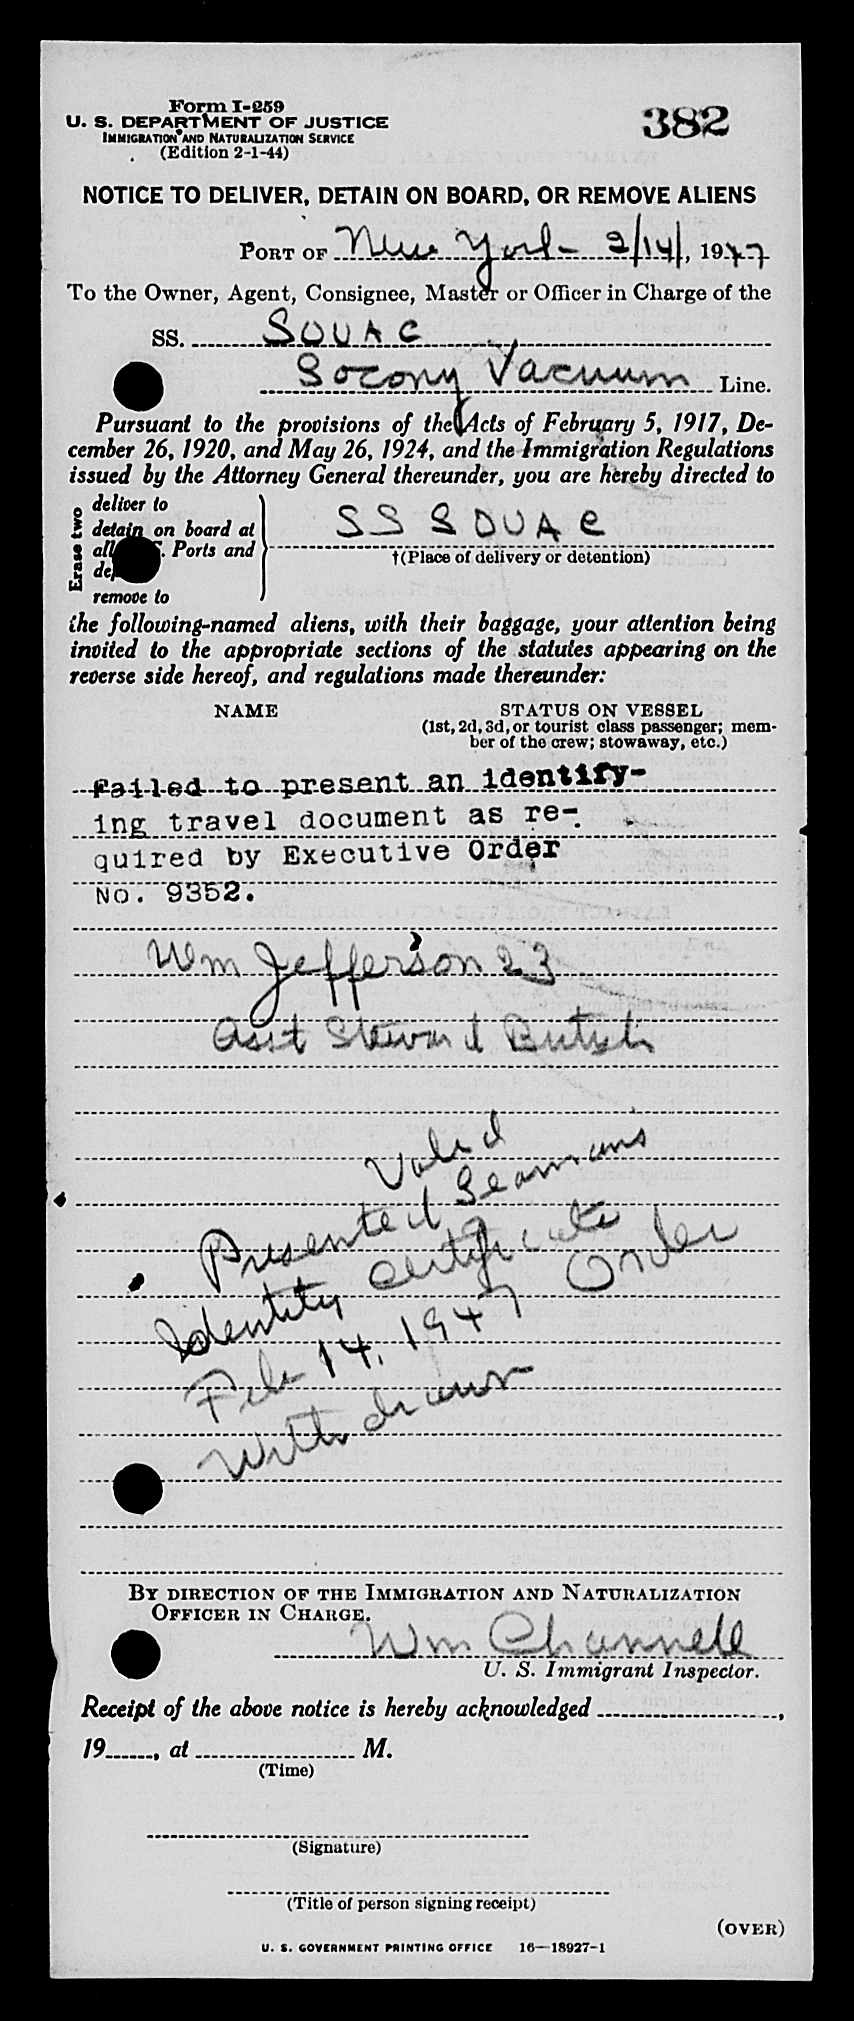 Form I-259
U. S. DEPARTMENT OF JUSTICE
IMMIGRATION AND NATURALIZATION SERVICE
(Edition 2-1-44)
382
NOTICE TO DELIVER, DETAIN ON BOARD, OR REMOVE ALIENS
PORT OF New York 2/14/, 1947
To the Owner, Agent, Consignee, Master or Officer in Charge of the
SS. SOVAC
Socony Vacuum Line.
Pursuant to the provisions of the Acts of February 5, 1917, De-
cember 26, 1920, and May 26, 1924, and the Immigration Regulations
issued by the Attorney General thereunder, you are hereby directed to
Erase two
deliver to
detain on board at
all . Ports and
remove to
SS SOVAC
†(Place of delivery or detention)
the following-named aliens, with their baggage, your attention being
invited to the appropriate sections of the statutes appearing on the
reverse side hereof, and regulations made thereunder:
NAME STATUS ON VESSEL
(1st, 2d, 3d, or tourist class passenger; mem-
ber of the crew; stowaway, etc.)
Failed to present an identify-
ing travel document as re-
quired by Executive Order
No. 9352.
Wm Jefferson 23
Asst Steward British
Valid
Presented Seamans
Identity Certificate Order
Feb 14, 1947
Withdrawn
BY DIRECTION OF THE IMMIGRATION AND NATURALIZATION
OFFICER IN CHARGE.
Wm Channell
U. S. Immigrant Inspector.
Receipt of the above notice is hereby acknowledged ,
19 , at M.
(Time)
(Signature)
(Title of person signing receipt)
(OVER)
U. S. GOVERNMENT PRINTING OFFICE 16—18927-1